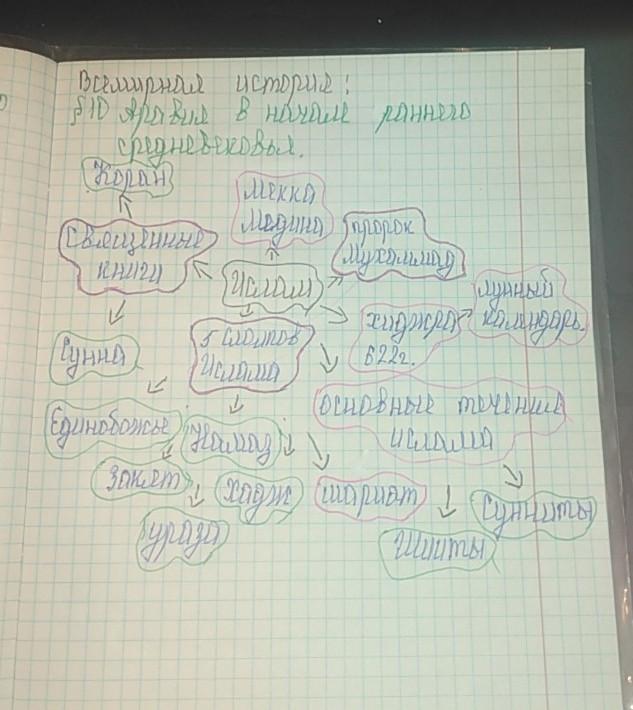 Всемирная история:
§10 Аравия в начале раннего
средневековья.
Коран
Мекка
Медина
Священные
книги
пророк
Мухаммад
Ислам
лунный
календарь.
хиджра
622г.
Сунна
5 столпов
Ислама
основные течения
ислама
Единобожье
Намаз
Закят
Хадж
шариат
Сунниты
ураза
Шииты